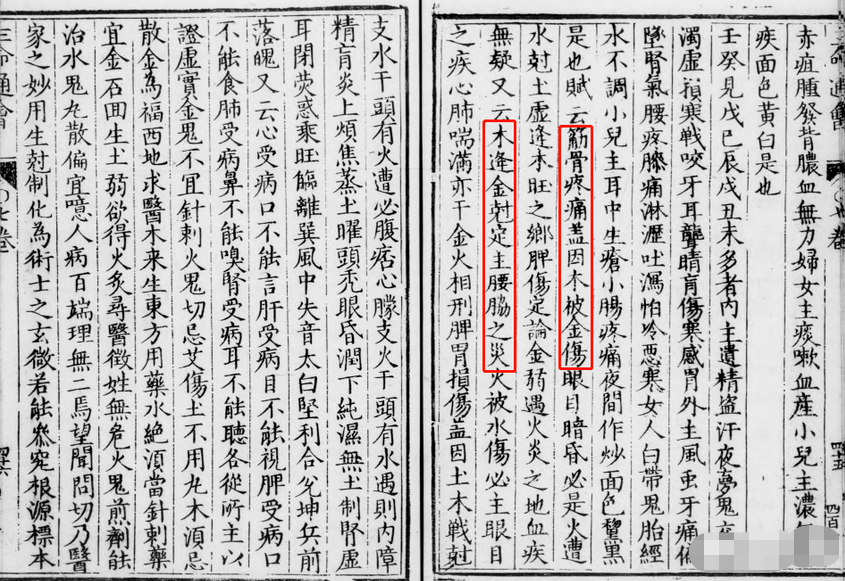 赤疽腫發背膿血無力婦女主痰嗽血産小兒主濃
疾面色黄白是也
壬癸見戊巳辰戌丑未多者内主遺精盗汗夜夢鬼
濁虚損寒戰咬牙耳聾睛盲傷寒感冒外主風虫牙痛
墜腎氣腰疼膝痛淋瀝吐瀉怕冷悪寒女人白帯鬼胎經
水不調小兒主耳中生瘡小腸疼痛夜間作炒面色黧黒
是也賦云筋骨疼痛盖因木被金傷眼目暗昏必是火遭
水尅土虚逢木旺之鄉脾傷定論金弱遇火炎之地血疾
無疑又云木逢金尅定主腰脇之災火被水傷必主眼目
之疾心肺喘滿亦干金火相刑脾胃損傷盖因土木戰尅
支水干頭有火遭必腹痞心朦支火干頭有水遇則内障
精盲炎上煩焦蒸土曜頭秃眼昏潤下純濕無土制腎虚
耳閉熒惑乘旺臨離巽風中失音太白堅利合兊坤兵前
落魄又云心受病口不能言肝受病目不能視脾受病口
不能食肺受病鼻不能嗅腎受病耳不能聽各從所主以
證虚實金鬼不冝針刺火鬼切忌艾傷土不用丸木湏忌
散金為福西地求醫木来生東方用藥水絶湏當針刺藥
宜金石囬生土弱欲得火炙尋醫徵姓無危火鬼煎劑能
治水鬼丸散偏宜噫人病百端理無二焉望聞問切乃醫
家之妙用生尅制化為術士之玄微若能叅究根源標本
三命通會
七卷